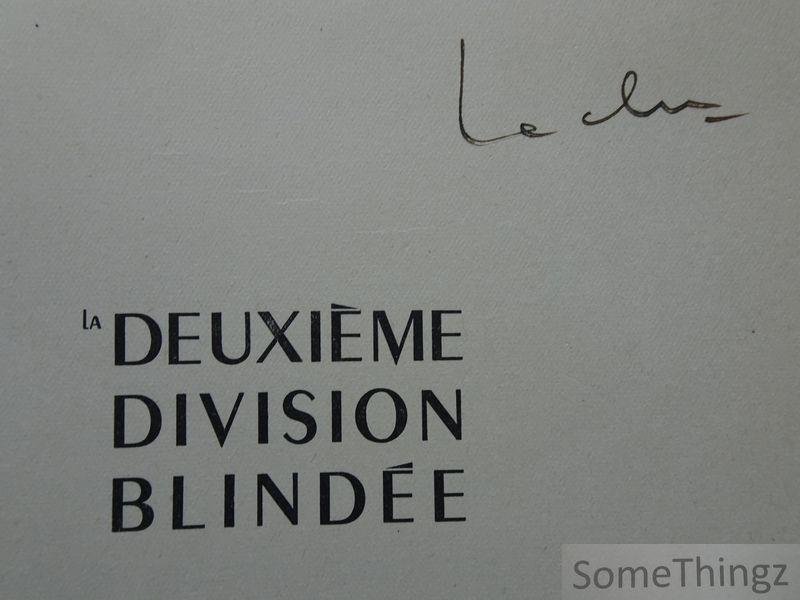 LA DEUXIÈME
DIVISION
BLINDÉE
SomeThingz